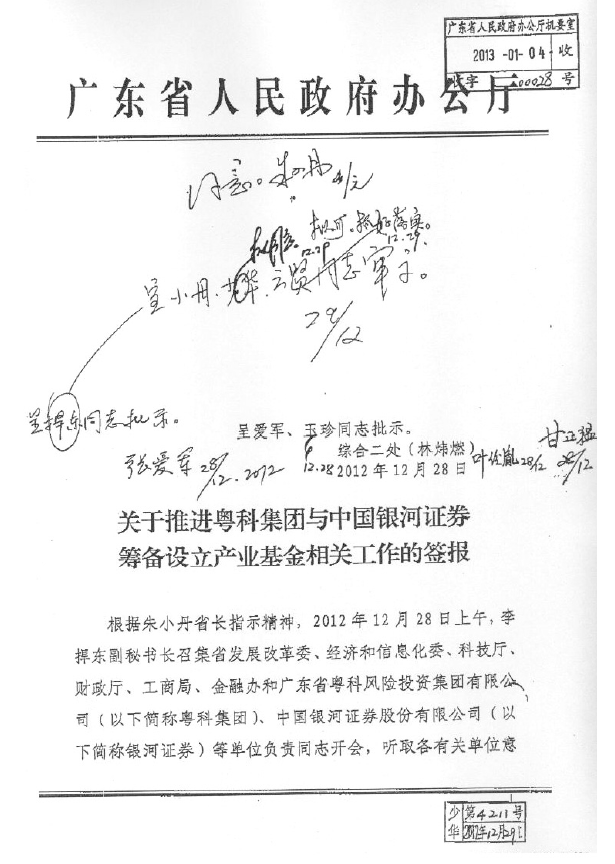 广东省人民政府办公厅机要室
2013-01-04 收
收字 00028 号
广东省人民政府办公厅
同意。朱小丹 4/元
12.29
12.29
呈小丹、少华、云贤同志审示。
28/12
呈捍东同志批示。
呈爱军、玉珍同志批示。
张爱军 28/12.2012
12.28
综合二处（林炜燃）
2012年12月28日
28/12
28/12
关于推进粤科集团与中国银河证券
筹备设立产业基金相关工作的签报
根据朱小丹省长指示精神，2012年12月28日上午，李
捍东副秘书长召集省发展改革委、经济和信息化委、科技厅、
财政厅、工商局、金融办和广东省粤科风险投资集团有限公
司（以下简称粤科集团）、中国银河证券股份有限公司（以
下简称银河证券）等单位负责同志开会，听取各有关单位意
少华
第4211号
2012年12月29日